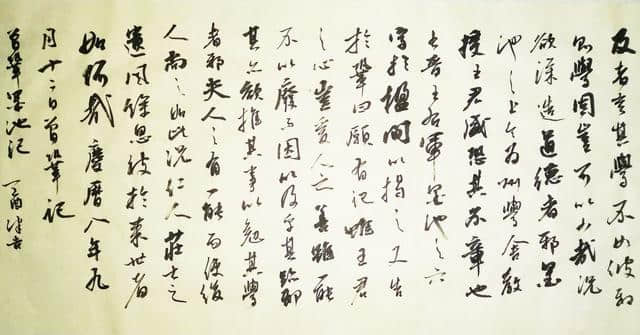 及者豈其學不如彼邪
則學固豈可以少哉況
欲深造道德者邪墨
池之上今為州學舍教
授王君盛恐其不章也
書晉王右軍墨池之六
字於楹間以揭之又告
於鞏曰願有記推王君
之心豈愛人之善雖一能
不以廢而因以及乎其跡邪
其亦欲推其事以勉其學
者邪夫人之有一能而使後
人尚之如此況仁人莊士之
遺風餘思被於來世者
如何哉慶曆八年九
月十二日曾鞏記
曾鞏墨池記 丁酉